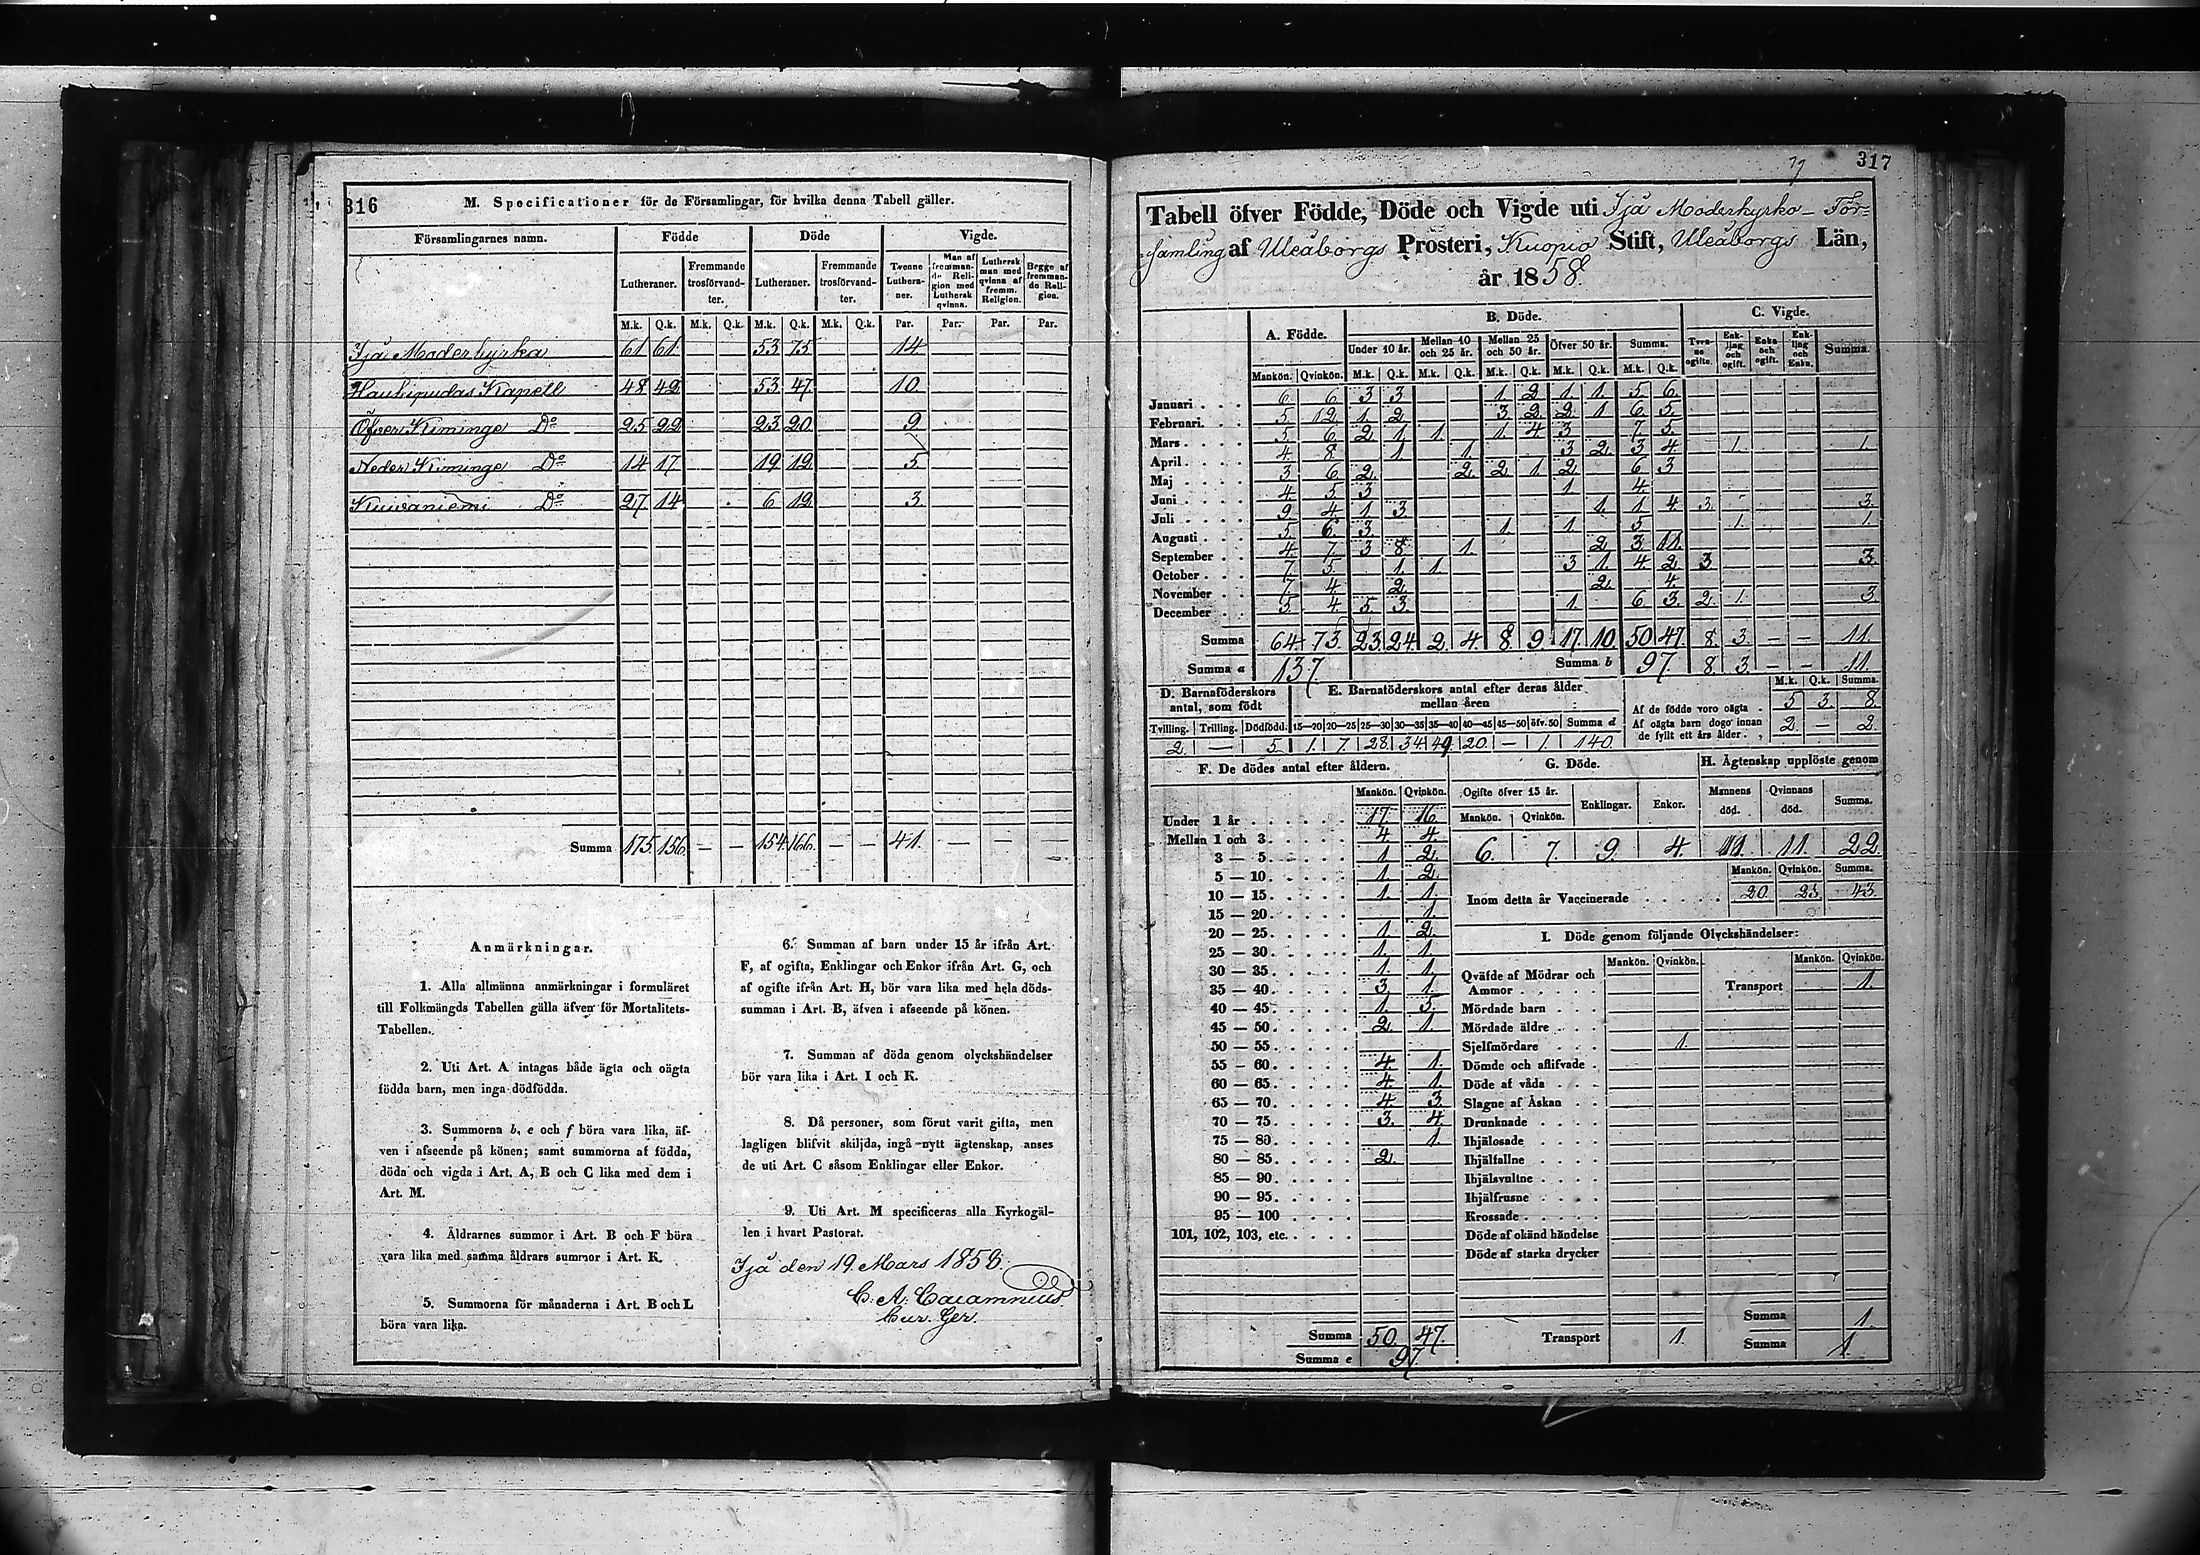 316
M. Specificationer för de Församlingar, för hvilka denna Tabell gäller.
Församlingarnes namn. Födde Döde Vigde.
Lutheraner. Fremmande trosförvandter. Lutheraner. Fremmande trosförvandter. Tvenne Lutheraner. Man af fremmande Religion med Luthersk qvinna. Luthersk man med qvinna af fremm. Religion. Begge af fremmande Religion.
M.k. Q.k. M.k. Q.k. M.k. Q.k. M.k. Q.k. Par. Par. Par. Par.
Ijå Moderkyrka 61 61. 53 75 14.
Haukipudas Kapell 48 42 53 47. 10.
Öfver Kiminge Do 25 22 23 20. 9.
Neder Kiminge Do 14 17. 19 12. 5.
Kuivaniemi Do 27 14 6 12. 3.
Summa 175. 156. — — 154. 166. — — 41. — — —
Anmärkningar.
1. Alla allmänna anmärkningar i formuläret
till Folkmängds Tabellen gälla äfven för Mortalitets-
Tabellen.
2. Uti Art. A intagas både ägta och oägta
födda barn, men inga dödfödda.
3. Summorna b, e och f böra vara lika, äf-
ven i afseende på könen; samt summorna af födda,
döda och vigda i Art. A, B och C lika med dem i
Art. M.
4. Äldrarnes summor i Art. B och F böra
vara lika med samma åldrars summor i Art. K.
5. Summorna för månaderna i Art. B och L
böra vara lika.
6. Summan af barn under 15 år ifrån Art.
F, af ogifta, Enklingar och Enkor ifrån Art. G, och
af ogifte ifrån Art. H, bör vara lika med hela döds-
summan i Art. B, äfven i afseende på könen.
7. Summan af döda genom olyckshändelser
bör vara lika i Art. I och K.
8. Då personer, som förut varit gifta, men
lagligen blifvit skiljda, ingå nytt ägtenskap, anses
de uti Art. C såsom Enklingar eller Enkor.
9. Uti Art. M specificeras alla Kyrkogäl-
len i hvart Pastorat.
Ijå den 19. Mars 1858.
C. A.
317
Tabell öfver Födde, Döde och Vigde uti Ijå Moderkyrko- För-
samling af Uleåborgs Prosteri, Kuopio Stift, Uleåborgs Län,
år 1858.
A. Födde. B. Döde. C. Vigde.
Under 10 år. Mellan 10 och 25 år. Mellan 25 och 50 år. Öfver 50 år. Summa. Tvenne ogifte. Enkling och ogift. Enka och ogift. Enkling och Enka. Summa.
Mankön. Qvinkön. M.k. Q.k. M.k. Q.k. M.k. Q.k. M.k. Q.k. M.k. Q.k.
Januari 6 6 3 3 1 2 1. 1. 5 6
Februari 5 12 1 2 3 2 2 1 6 5
Mars 5 6 2 1 1. 1. 4 3 7 5
April 4 8 1 1. 3 2 3 4 1. 1.
Maj 3 6 2 2 2 1 2 6 3
Juni 4 5 3 1 4
Juli 9 4 1 3 1. 1 4 3. 3.
Augusti 5 6 3 1. 1 5 1. 1.
September 4 7 3 8 1. 2 3 11.
October 7 5 1 1. 3 1. 4 2 3 3.
November 7 4 2 2 4
December 5 4 5. 3. 1. 6 3. 2. 1. 3
Summa 64. 73. 23. 24. 2. 4. 8. 9. 17. 10. 50. 47. 8. 3. — — 11.
Summa a 137. Summa b 97. 8. 3. — — 11.
D. Barnaföderskors antal, som född E. Barnaföderskors antal efter deras ålder mellan åren M.k. Q.k. Summa.
Tvilling. Trilling. Dödfödd. 15—20 20—25 25—30 30—35 35—40 40—45 45—50 öfv.50 Summa d
2. — 5. 1. 7. 28. 34. 49. 20. — 1. 140.
Af de födde voro oägta 5 3 8.
Af oägta barn dogo innan de fyllt ett års ålder 2 — 2.
F. De dödes antal efter åldern. G. Döde. H. Ägtenskap upplöste genom
Mankön. Qvinkön. Ogifte öfver 15 år. Enklingar. Enkor. Mannens död. Qvinnans död. Summa.
Mankön. Qvinkön.
6. 7. 9. 4. 11. 11. 22.
Under 1 år 17 16
Mellan 1 och 3 4. 4.
3 — 5 1 2.
5 — 10 1 2
10 — 15 1. 1.
15 — 20 1.
20 — 25 1 2.
25 — 30 1. 1.
30 — 35 1. 1.
35 — 40 3 1.
40 — 45 1. 5.
45 — 50 2 1.
50 — 55
55 — 60 4. 1.
60 — 65 4. 1.
65 — 70 4. 3.
70 — 75 3. 4.
75 — 80 1.
80 — 85 2.
85 — 90
90 — 95
95 — 100
101, 102, 103, etc.
Summa 50. 47.
Summa e 97.
Mankön. Qvinkön. Summa.
Inom detta år Vaccinerade 20. 23. 43.
I. Döde genom följande Olyckshändelser:
Mankön. Qvinkön. Mankön. Qvinkön.
Qväfde af Mödrar och Ammor Transport 1.
Mördade barn
Mördade äldre
Sjelfmördare 1.
Dömde och aflifvade
Döde af våda
Slagne af Åskan
Drunknade
Ihjälosade
Ihjälfallne
Ihjälsvultne
Ihjälfrusne
Krossade
Döde af okänd händelse
Döde af starka drycker
Summa 1.
Transport 1. Summa 1.